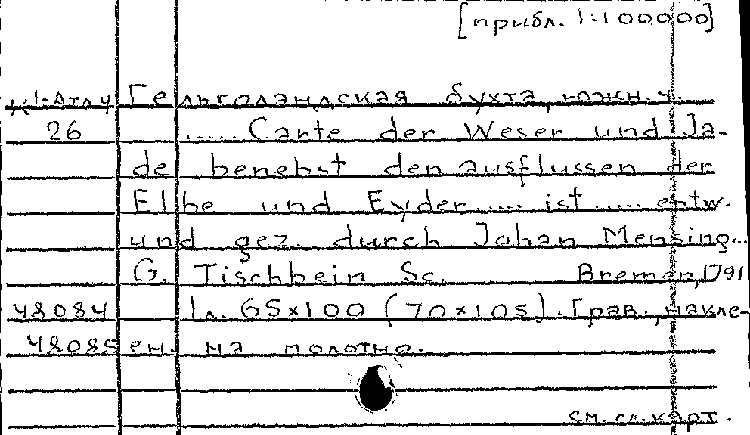 [прибл. 1:100000]
Гельголандская бухта, южн. ч.
26 ..... Carte der Weser und Ja-
de benebst den ausflussen der
Elbe und Eyder..... ist ..... entw.
und gez. durch Johan Mensing...
G. Tischbein Sc. Bremen, 1791
48084 1 л. 65×100 (70×105). Грав., накле-
48085 ен. на полотно.
см. сл. карт.